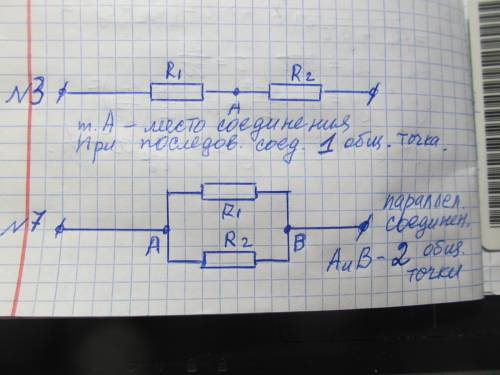 №3 R1 A R2
т. А - место соединения
При последов. соед. 1 общ. точка.
№7 A R1 R2 B
параллел.
соединен.
А и В - 2 общ.
точки